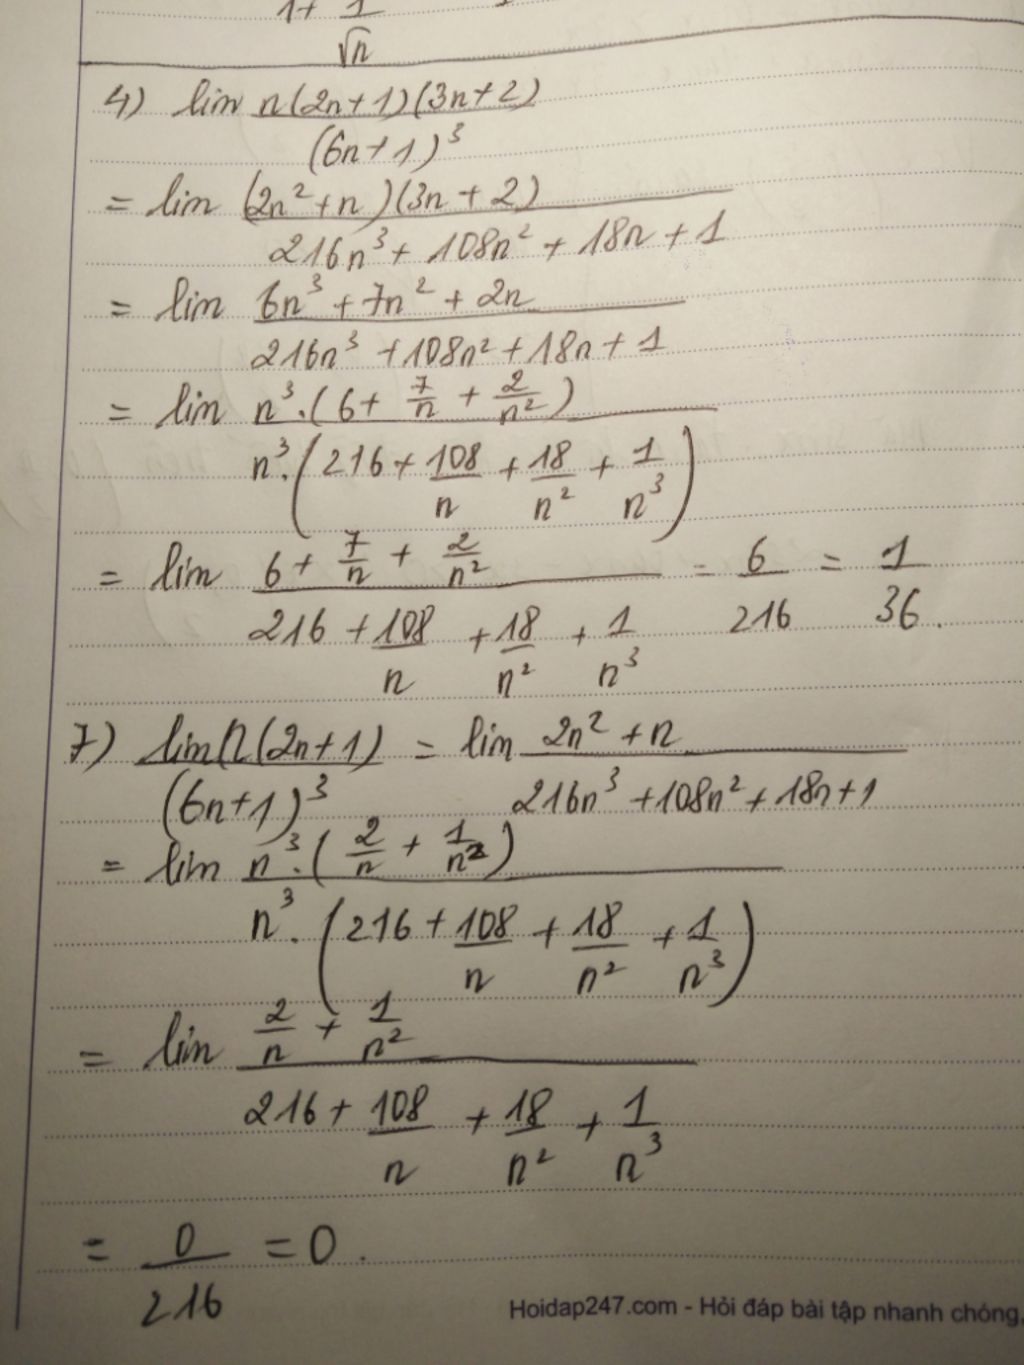 1+ 1/√n
4) lim n(2n+1)(3n+2)/(6n+1)³
= lim (2n²+n)(3n+2)/(216n³+108n²+18n+1)
= lim (6n³+7n²+2n)/(216n³+108n²+18n+1)
= lim n³.(6+7/n+2/n²)/n³.(216+108/n+18/n²+1/n³)
= lim (6+7/n+2/n²)/(216+108/n+18/n²+1/n³) = 6/216 = 1/36.
7) lim n(2n+1)/(6n+1)³ = lim (2n²+n)/(216n³+108n²+18n+1)
= lim n³.(2/n+1/n²)/n³.(216+108/n+18/n²+1/n³)
= lim (2/n+1/n²)/(216+108/n+18/n²+1/n³)
= 0/216 = 0.
Hoidap247.com - Hỏi đáp bài tập nhanh chóng,